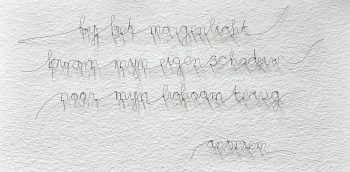 bij het morgenlicht
kwam mijn eigen schaduw
naar mijn lichaam terug